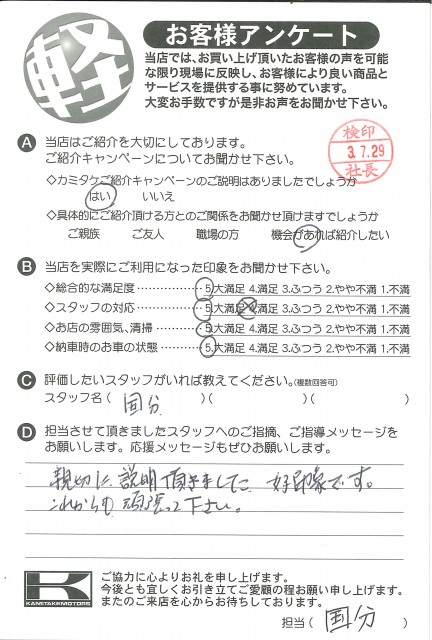 軽
お客様アンケート
当店では、お買い上げ頂いたお客様の声を可能
な限り現場に反映し、お客様により良い商品と
サービスを提供する事に努めています。
大変お手数ですが是非お声をお聞かせ下さい。
A 当店はご紹介を大切にしております。
ご紹介キャンペーンについてお聞かせ下さい。
検印
3.7.29
社長
◇カミタケご紹介キャンペーンのご説明はありましたでしょうか
はい いいえ
◇具体的にご紹介頂ける方とのご関係をお聞かせ頂けますでしょうか
ご親族 ご友人 職場の方 機会があれば紹介したい
B 当店を実際にご利用になった印象をお聞かせ下さい。
◇総合的な満足度 ·············· 5.大満足 4.満足 3.ふつう 2.やや不満 1.不満
◇スタッフの対応 ·············· 5.大満足 4.満足 3.ふつう 2.やや不満 1.不満
◇お店の雰囲気、清掃 ·········· 5.大満足 4.満足 3.ふつう 2.やや不満 1.不満
◇納車時のお車の状態 ·········· 5.大満足 4.満足 3.ふつう 2.やや不満 1.不満
C 評価したいスタッフがいれば教えてください。(複数回答可)
スタッフ名( 国分 )( )( )
D 担当させて頂きましたスタッフへのご指摘、ご指導メッセージを
お願いします。応援メッセージもぜひお願いします。
親切に説明頂きました 好印象です。
これからも頑張って下さい。
K
KAMITAKE MOTORS
ご協力に心よりお礼を申し上げます。
今後とも宜しくお引き立てご愛顧の程お願い申し上げます。
またのご来店を心からお待ちしております。
担当( 国分 )